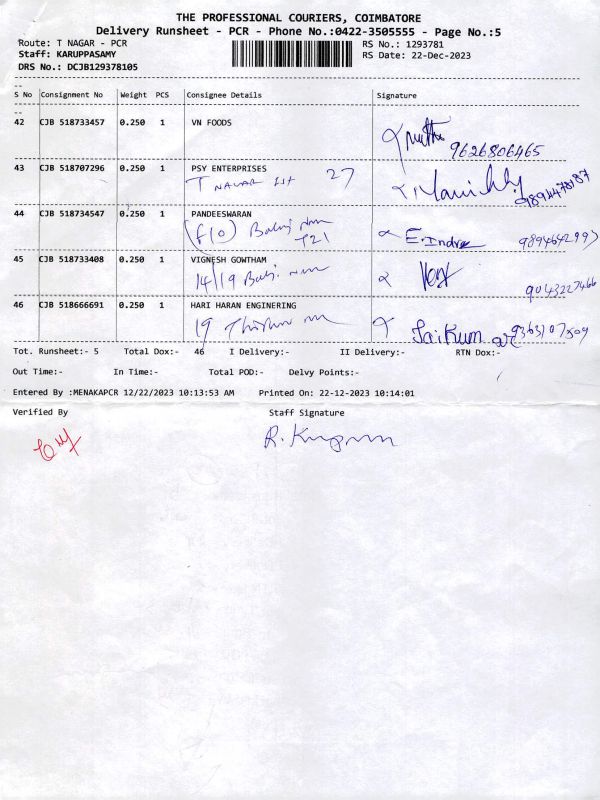 THE PROFESSIONAL COURIERS, COIMBATORE
Delivery Runsheet - PCR - Phone No.:0422-3505555 - Page No.:5
Route: T NAGAR - PCR RS No.: 1293781
Staff: KARUPPASAMY RS Date: 22-Dec-2023
DRS No.: DCJB129378105
S No Consignment No Weight PCS Consignee Details Signature
42 CJB 518733457 0.250 1 VN FOODS
9626806465
43 CJB 518707296 0.250 1 PSY ENTERPRISES
T NAGAR 27
44 CJB 518734547 0.250 1 PANDEESWARAN
(F10)
T21 E.Indra
45 CJB 518733408 0.250 1 VIGNESH GOWTHAM
14/19
9043227466
46 CJB 518666691 0.250 1 HARI HARAN ENGINERING
19 Saikumar 9363107509
Tot. Runsheet:- 5 Total Dox:- 46 I Delivery:- II Delivery:- RTN Dox:-
Out Time:- In Time:- Total POD:- Delvy Points:-
Entered By :MENAKAPCR 12/22/2023 10:13:53 AM Printed On: 22-12-2023 10:14:01
Verified By Staff Signature